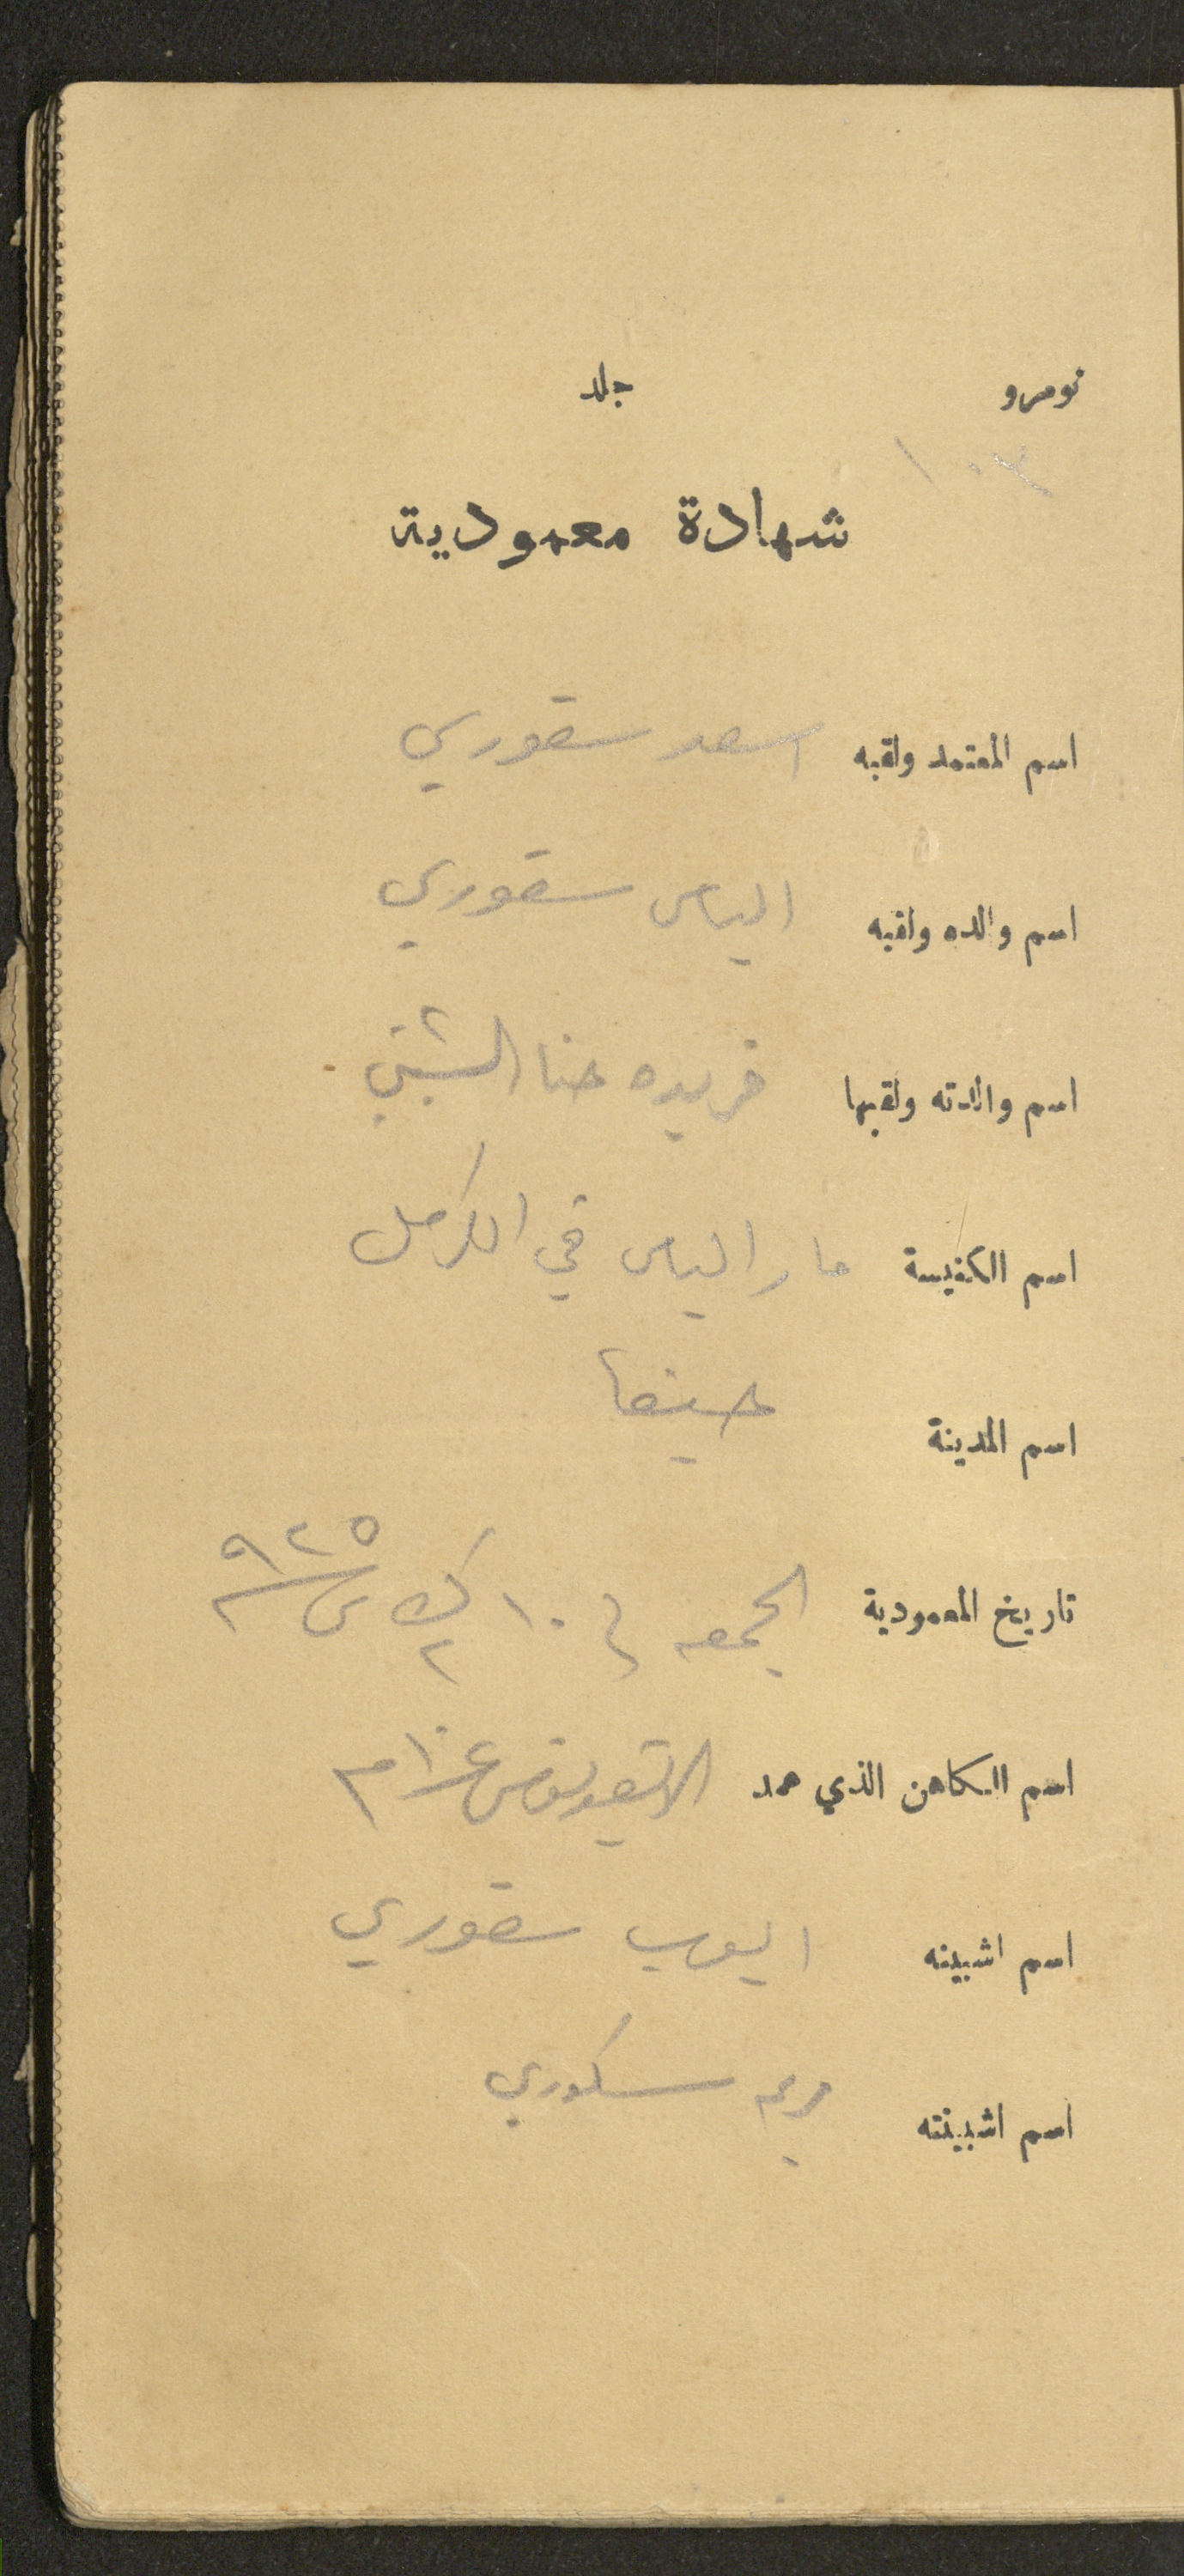 نومرو جلد
١٠٣
شهادة معمودية
اسم المعتمد ولقبه اسعد سقوري
اسم والده ولقبه الياس سقوري
اسم والدته ولقبها فريده حنا
اسم الكنيسة مار الياس في الكرمل
اسم المدينة حيفا
تاريخ المعمودية الجمعه في ١٠ ك ٢ س ٩٢٥
اسم الكاهن الذي عمد عزام
اسم اشبينه ايوب سقوري
اسم اشبينته مريم سكوري